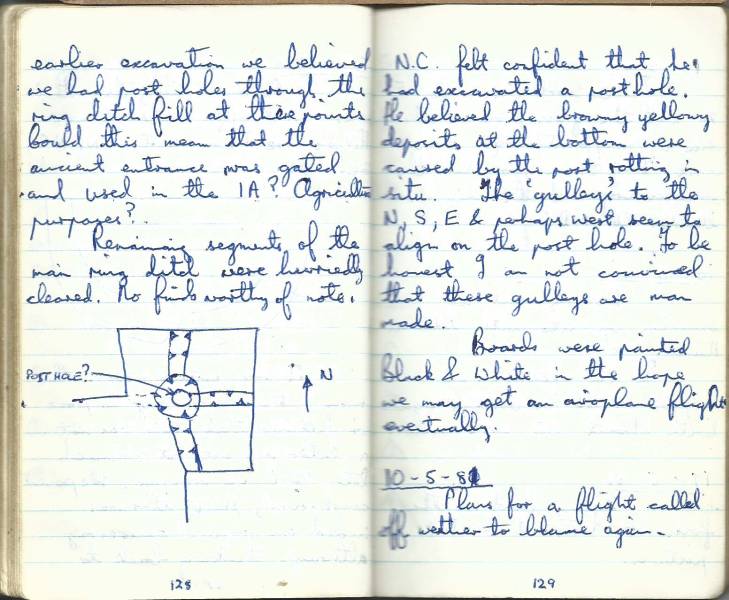 earlier excavation we believed
we had post holes through the
ring ditch fill at these points
Could this mean that the
ancient entrance was gated
and used in the IA? Agricultural
purposes?.
Remaining segments of the
main ring ditch were hurriedly
cleared. No finds worthy of note.
POST HOLE?
N
128
N.C. felt confident that he
had excavated a post hole.
He believed the browny yellowy
deposits at the bottom were
caused by the post rotting in
situ. The 'gulleys' to the
N, S, E & perhaps west seem to
align on the post hole. To be
honest I am not convinced
that these gulleys are man
made.
Boards were painted
Black & White in the hope
we may get an airoplane flight
eventually.
10-5-81
Plans for a flight called
off weather to blame again.
129